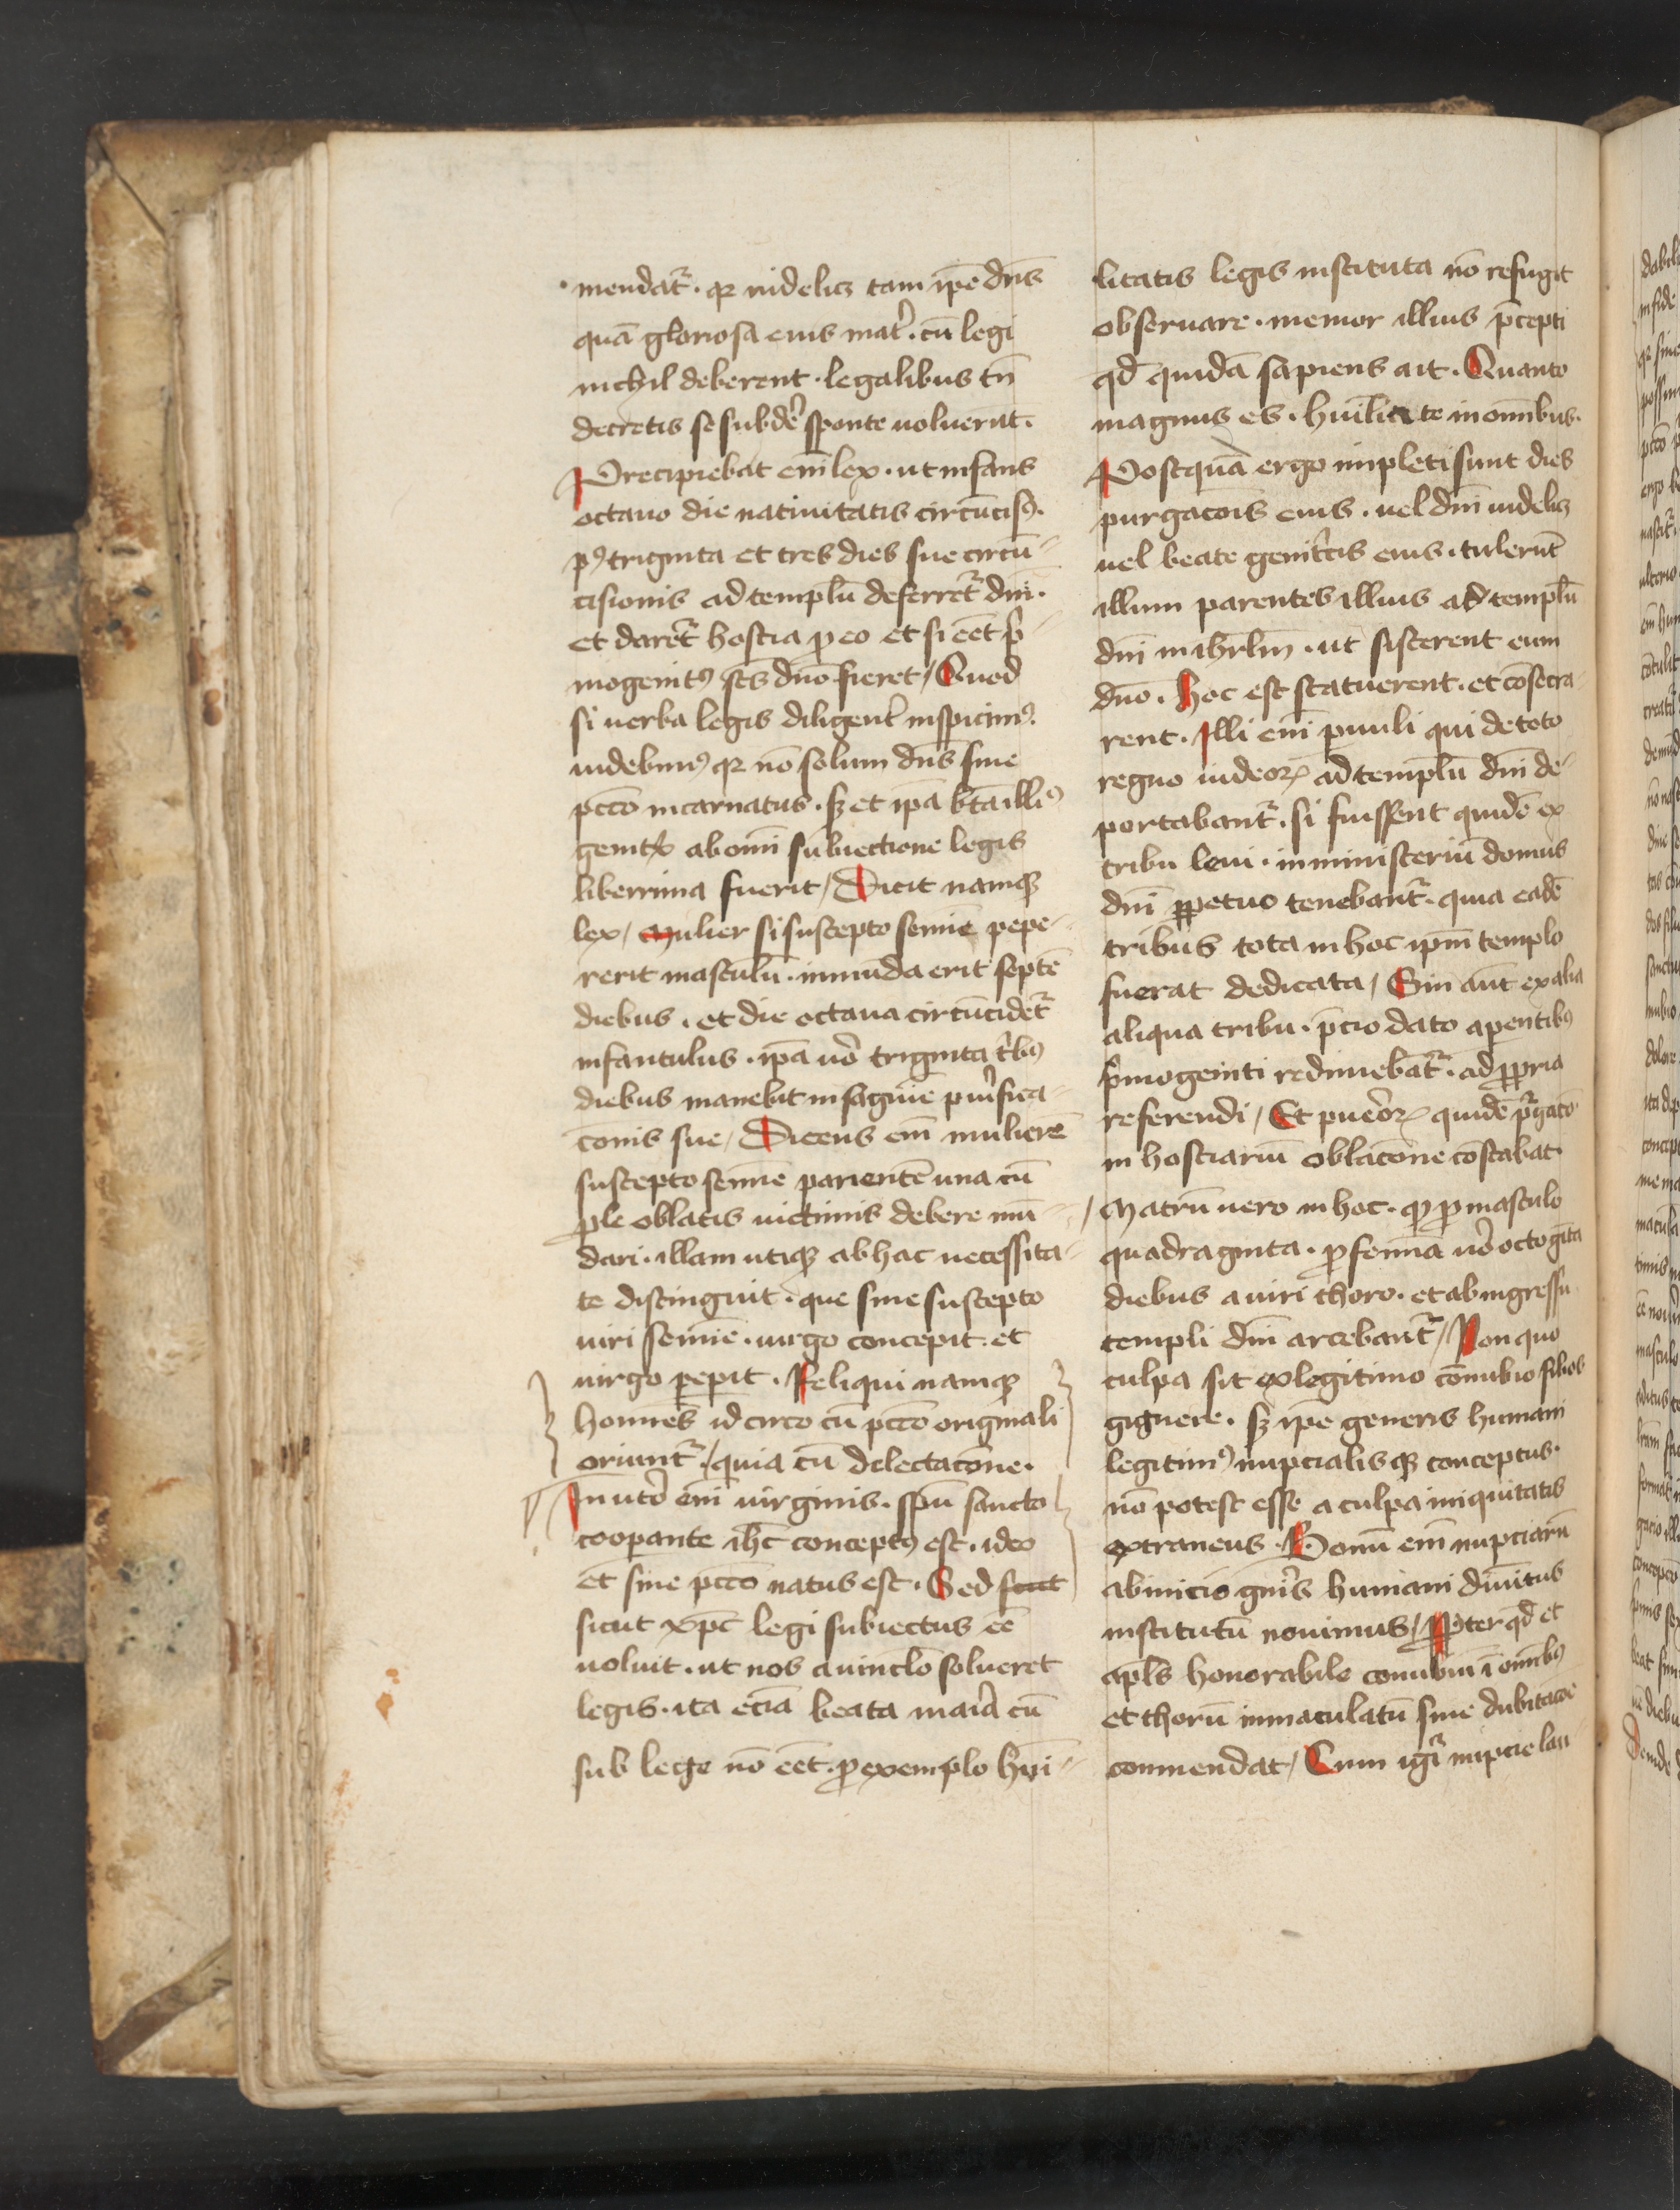 mendat᷑ · qꝛ videlicꝫ tam ip̄e dn̄s
quā gloriosa eius mat̉ · cū legi
nichil deberent · legalibus tn̄
decretis se subde᷑ sponte voluerūt ·
Precipiebat em̄ lex · ut infans
octauo die natiuitatis circūcisꝰ ·
pꝰ triginta et tres dies sue circū-
cisionis ad templū deferret᷑ dn̄i ·
et daret᷑ hostia ꝓ eo et si eēt p̄-
mogenitꝰ scs̄ dn̄o fieret / Quod
si verba legis diligent̉ inspicimꝰ ·
videbimꝰ qꝛ nō solum dn̄s sine
pctō incarnatus · sꝫ et ip̄a bt̄a illiꝰ
genit᷑x ab om̄i subiectione legis
liberrima fuerit / Dicit namqꝫ
lex / Mulier si suscepto semīe pepe-
rerit masculū · inmūda erit septē
diebus · et die octaua circūcidet᷑
infantulus · ip̄a vo᷑ triginta t᷑bꝰ
diebus manebit in sāguīe pu᷑ifica-
cōnis sue / Dicens em̄ mulierē
suscepto semīe parientē una cū
ꝓle oblatis victimis debere mū-
dari · illam utiqꝫ ab hac necessita-
te distinguit · que sine suscepto
viri semīe · virgo concepit · et
virgo peperit · Reliqui namqꝫ
homines idcirco cū pctō originali
oriunt᷑ / quia cū delectacōne ·
In ute᷑o em̄ virginis · spū sancto
coopante ih̄c conceptꝰ est · ideo
et sine pctō natus est · Sed sicut
sicut xp̄c legi subiectus eē
voluit · ut nos a vinclō solueret
legis · ita eciā beata ma᷑ia cū
sub lege nō eēt · ꝓ exemplo hūi-
litatis legis instituta nō refugit
obseruare · memor illius p̄cepti
qd̄ quidā sapiens ait · Quanto
magnus es · hūilia te in om̄ibus ·
Postquā ergo impleti sunt dies
purgacōis eius · vel dn̄i videlicꝫ
vel beate genit᷑cis eius · tulerūt
illum parentes illius ad templū
dn̄i in ihrl̄m · ut sisterent eum
dn̄o · hoc est statuerent · et cōsecra-
rent · Illi em̄ puuli qui de toto
regno iudeoꝝ ad templū dn̄i de-
portabant᷑ · si fuissent quidē ex
tribu leui · in ministeriū domus
dn̄i ꝑpetuo tenebant᷑ · quia eadē
tribus tota in hoc ip̄m templo
fuerat dedicata / Sin aūt ex alia
aliqua tribu · p̄cio dato a parentibꝰ
p̄mogeniti redimebāt᷑ · ad ꝓpria
referendi / Et pueroꝝ quidē p᷑gacō
in hostiarū oblacōne cōstabat ·
Matrū vero in hoc · qꝫ ꝓ masculo
quadraginta · ꝓ femīa vo᷑ octogīta
diebus a viri thoro · et ab ingressu
templi dn̄i arcebant᷑ / Non quo
culpa sit ex legitimo cōnubio filios
gignere · sꝫ ip̄e generis humani
legitimꝰ nupcialisqꝫ conceptus ·
nō potest esse a culpa iniquitatis
extraneus · Bonū em̄ nupciarū
ab inicio gn̄is humani diuītus
institutū nouimus / Ꝓpter qd̄ et
apl̄s honorabile conubiū ī om̄ibꝰ
et thorū inmaculatū sine dubitacōe
commendat / Cum igi᷑ nupcie lau-